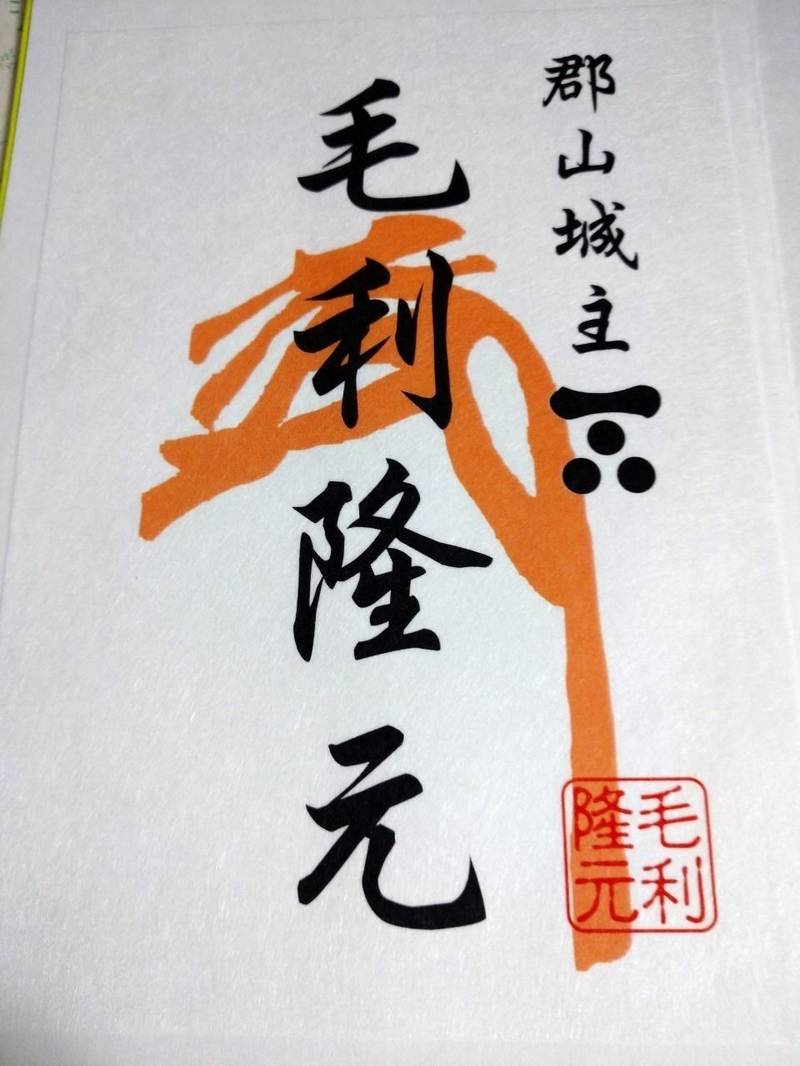 郡山城主
毛利隆元
毛利
隆元